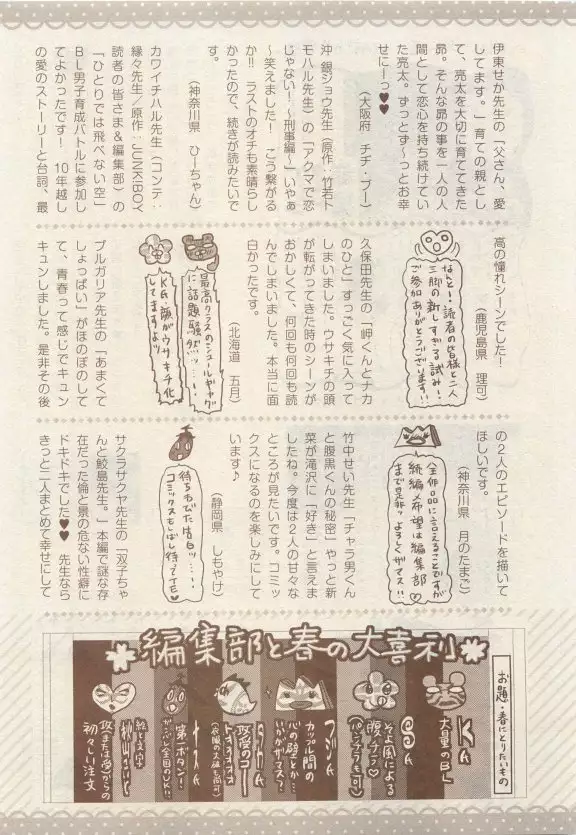 伊東せか先生の「父さん、愛
してます。」育ての親とし
て、亮太を大切に育ててきた
昴。そんな昴の事を一人の人
間として恋心を持ち続けてい
た亮太。ずっとず～っとお幸
せにーっ♥♥
（大阪府　チチ・ブー）
沖 銀ジョウ先生（原作：竹若ト
モハル先生）の「アクマで恋
じゃない！～刑事編～」いやぁ
～笑えました！　こう繋がる
か!!　ラストのオチも素晴らし
かったので、続きが読みたいで
す。
（神奈川県　ひーちゃん）
カワイチハル先生（コンテ：
縁々先生／原作：JUNKIBOY
読者の皆さま&編集部）の
「ひとりでは飛べない空」
BL男子育成バトルに参加し
てよかったです！　10年越し
の愛のストーリーと台詞、最
高の憧れシーンでした！
（鹿児島県　理可）
なんと！読者の皆様と二人
三脚の新しすぎる試み！
ご参加ありがとうございます!!
久保田先生の「岬くんとナカ
のひと」すっごく気に入って
しまいました。ウサキチの頭
が転がってきた時のシーンが
おかしくて、何回も何回も読
んでしまいました。本当に面
白かったです。
（北海道　五月）
最高クラスのシュールギャグ
に話題騒然ッ……！
KA・顔がウサキチ化
してますよッ
ブルガリア先生の「あまくて
しょっぱい」がほのぼのしてい
て、青春って感じでキュン
キュンしました。是非その後
の2人のエピソードを描いて
ほしいです。
（神奈川県　月のたまご）
全作品に言えることですが
続編ご希望は編集部
まで是非ッよろしくザマス!!
竹中せい先生「チャラ男くん
と腹黒くんの秘密」やっと新
菜が滝沢に「好き」と言えま
したね。今度は2人の甘々な
ところが見たいです。コミッ
クスになるのを楽しみにして
います♪
（静岡県　しもやけ）
待ちわびた告白ッ……！
コミックスもしばし待ってTE♥
サクラサクヤ先生の「双子ちゃ
んと鮫島先生。」本編で謎な存
在だった倫と景の危ない性癖に
ドキドキでした♥♥　先生なら
きっと二人まとめて幸せにして
編集部と春の大喜利
お題・春にとりたいもの
KA
大量のBL
SA
そよ風による
腹チラ♡
（パンチラも可）
カップル間の
心の壁とか…
いかがザマス？
攻受のコート
第二ボタン！
ガッポし全国のDKの!!
攻（または受）からの
初々しい注文